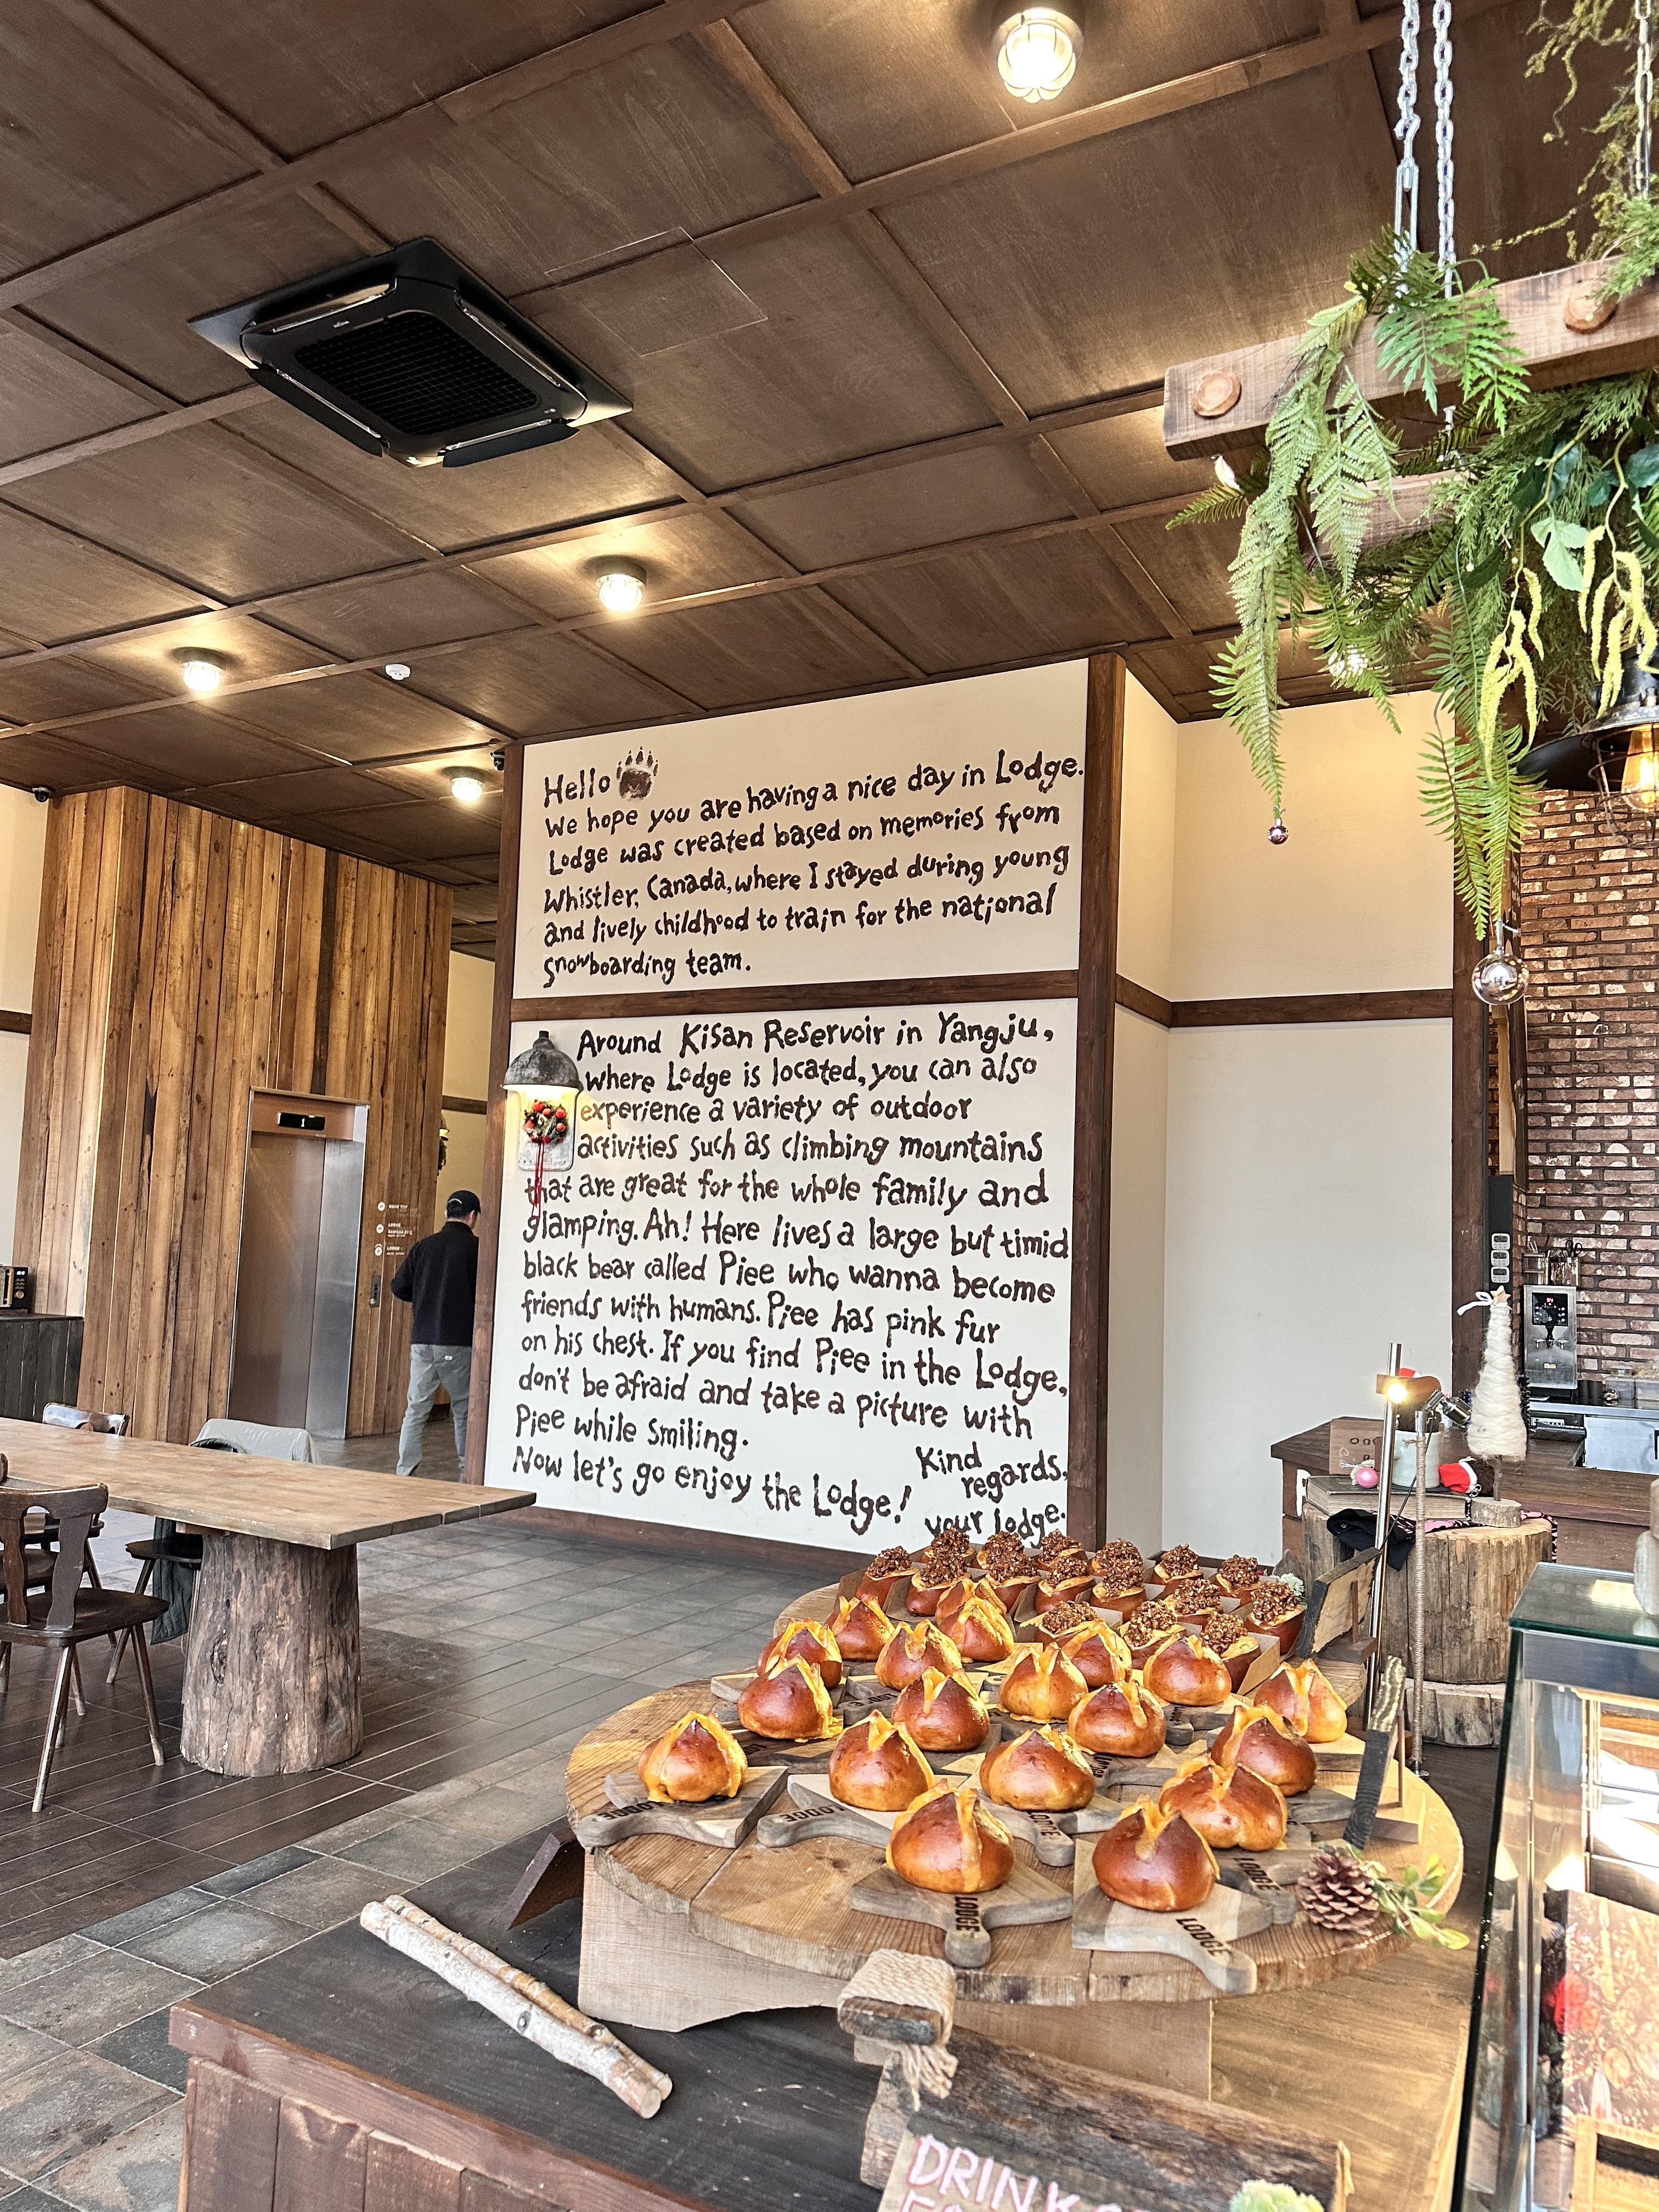 Hello
We hope you are having a nice day in Lodge.
Lodge was created based on memories from
Whistler, Canada, where I stayed during young
and lively childhood to train for the national
snowboarding team.
Around Kisan Reservoir in Yangju,
where Lodge is located, you can also
experience a variety of outdoor
activities such as climbing mountains
that are great for the whole family and
glamping. Ah! Here lives a large but timid
black bear called Piee who wanna become
friends with humans. Piee has pink fur
on his chest. If you find Piee in the Lodge,
don't be afraid and take a picture with
Piee while smiling.
Now let's go enjoy the Lodge!
Kind
regards,
your lodge.
1
LODGE
LODGE
LODGE
LODGE
LODGE
LODGE
DRINK